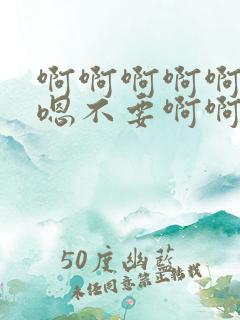 啊啊啊啊啊
嗯不要啊啊
50度幽藍
未任同意禁止转载